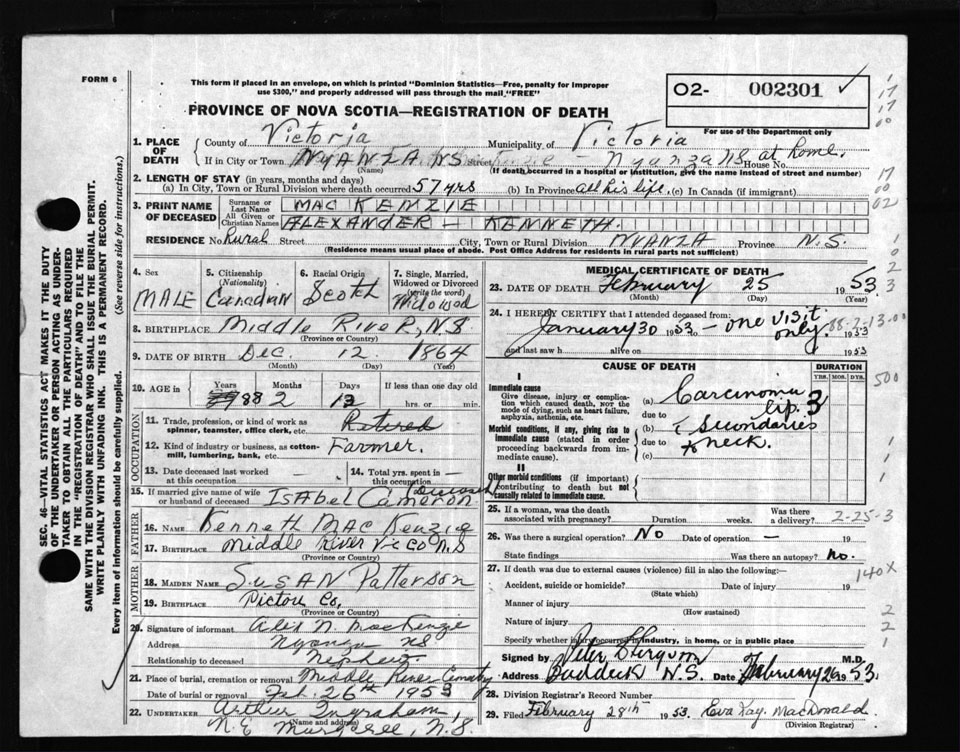 FORM 6
This form if placed in an envelope, on which is printed "Dominion Statistics—Free, penalty for improper
use $300," and properly addressed will pass through the mail, "FREE"
O2- 002301 ✓
PROVINCE OF NOVA SCOTIA—REGISTRATION OF DEATH
For use of the Department only
1. PLACE OF DEATH { County of Victoria Municipality of Victoria
If in City or Town NYANZA NS Street Nyanza NS at home. House No.
(Name) (If death occurred in a hospital or institution, give the name instead of street and number)
2. LENGTH OF STAY (in years, months and days)
(a) In City, Town or Rural Division where death occurred 57 yrs (b) In Province all his life. (c) In Canada (if immigrant)
3. PRINT NAME OF DECEASED { Surname or Last Name MAC KENZIE
All Given or Christian Names ALEXANDER — KENNETH.
RESIDENCE No. Rural Street City, Town or Rural Division NYANZA Province N.S.
(Residence means usual place of abode. Post Office Address for residents in rural parts not sufficient)
4. Sex MALE
5. Citizenship (Nationality) Canadian
6. Racial Origin Scotch
7. Single, Married, Widowed or Divorced (write the word) Widowed
8. BIRTHPLACE Middle River, NS
(Province or Country)
9. DATE OF BIRTH Dec. 12 1864
(Month) (Day) (Year)
10. AGE in { Years 88 Months 2 Days 13 If less than one day old
hrs. or min.
OCCUPATION
11. Trade, profession, or kind of work as spinner, teamster, office clerk, etc. Retired
12. Kind of industry or business, as cotton-mill, lumbering, bank, etc. Farmer.
13. Date deceased last worked at this occupation —
14. Total yrs. spent in this occupation —
15. If married give name of wife or husband of deceased Isabel Cameron (Deceased)
FATHER
16. NAME Kenneth MacKenzie
17. BIRTHPLACE Middle River Vic Co N.S
(Province or Country)
MOTHER
18. MAIDEN NAME Susan Patterson
19. BIRTHPLACE Pictou Co,
(Province or Country)
20. Signature of informant Alex N. MacKenzie
Address Nyanza NS
Relationship to deceased Nephew.
21. Place of burial, cremation or removal Middle River Cemetery
Date of burial or removal Feb. 26th 1953
22. UNDERTAKER Arthur Ingraham,
(Name and address)
N.E Margaree, N.S.
MEDICAL CERTIFICATE OF DEATH
23. DATE OF DEATH February 25 1953
(Month) (Day) (Year)
24. I HEREBY CERTIFY that I attended deceased from:
January 30 1953 — one visit only. 1953
and last saw h alive on 1953
CAUSE OF DEATH
DURATION
YRS. MOS. DYS.
I
Immediate cause
Give disease, injury or complication which caused death, NOT the mode of dying, such as heart failure, asphyxia, asthenia, etc.
(a) Carcinoma
due to lip. 3
Morbid conditions, if any, giving rise to immediate cause (stated in order proceeding backwards from immediate cause).
(b) c secondaries
due to neck.
(c)
II
Other morbid conditions (if important) contributing to death but not causally related to immediate cause.
25. If a woman, was the death associated with pregnancy? Duration weeks. Was there a delivery?
26. Was there a surgical operation? No Date of operation — 19
State findings Was there an autopsy? No.
27. If death was due to external causes (violence) fill in also the following:—
Accident, suicide or homicide? Date of injury 19
(State which)
Manner of injury
(How sustained)
Nature of injury
Specify whether injury occurred in industry, in home, or in public place
Signed by M.D.
Address Baddeck N.S. Date February 26 1953.
28. Division Registrar's Record Number
29. Filed February 28th 1953 Eva Kay. MacDonald
(Division Registrar)
SEC. 46—VITAL STATISTICS ACT MAKES IT THE DUTY
OF THE UNDERTAKER OR PERSON ACTING AS UNDER-
TAKER TO OBTAIN ALL THE PARTICULARS REQUIRED
IN THE "REGISTRATION OF DEATH" AND TO FILE THE
SAME WITH THE DIVISION REGISTRAR WHO SHALL ISSUE THE BURIAL PERMIT.
WRITE PLAINLY WITH UNFADING INK. THIS IS A PERMANENT RECORD.
Every item of information should be carefully supplied. (See reverse side for instructions.)
1
17
17
00
17
00
02
1
0
2
3
88-2-13-00
500
1
1
1
2-25-3
140X
2
2
1